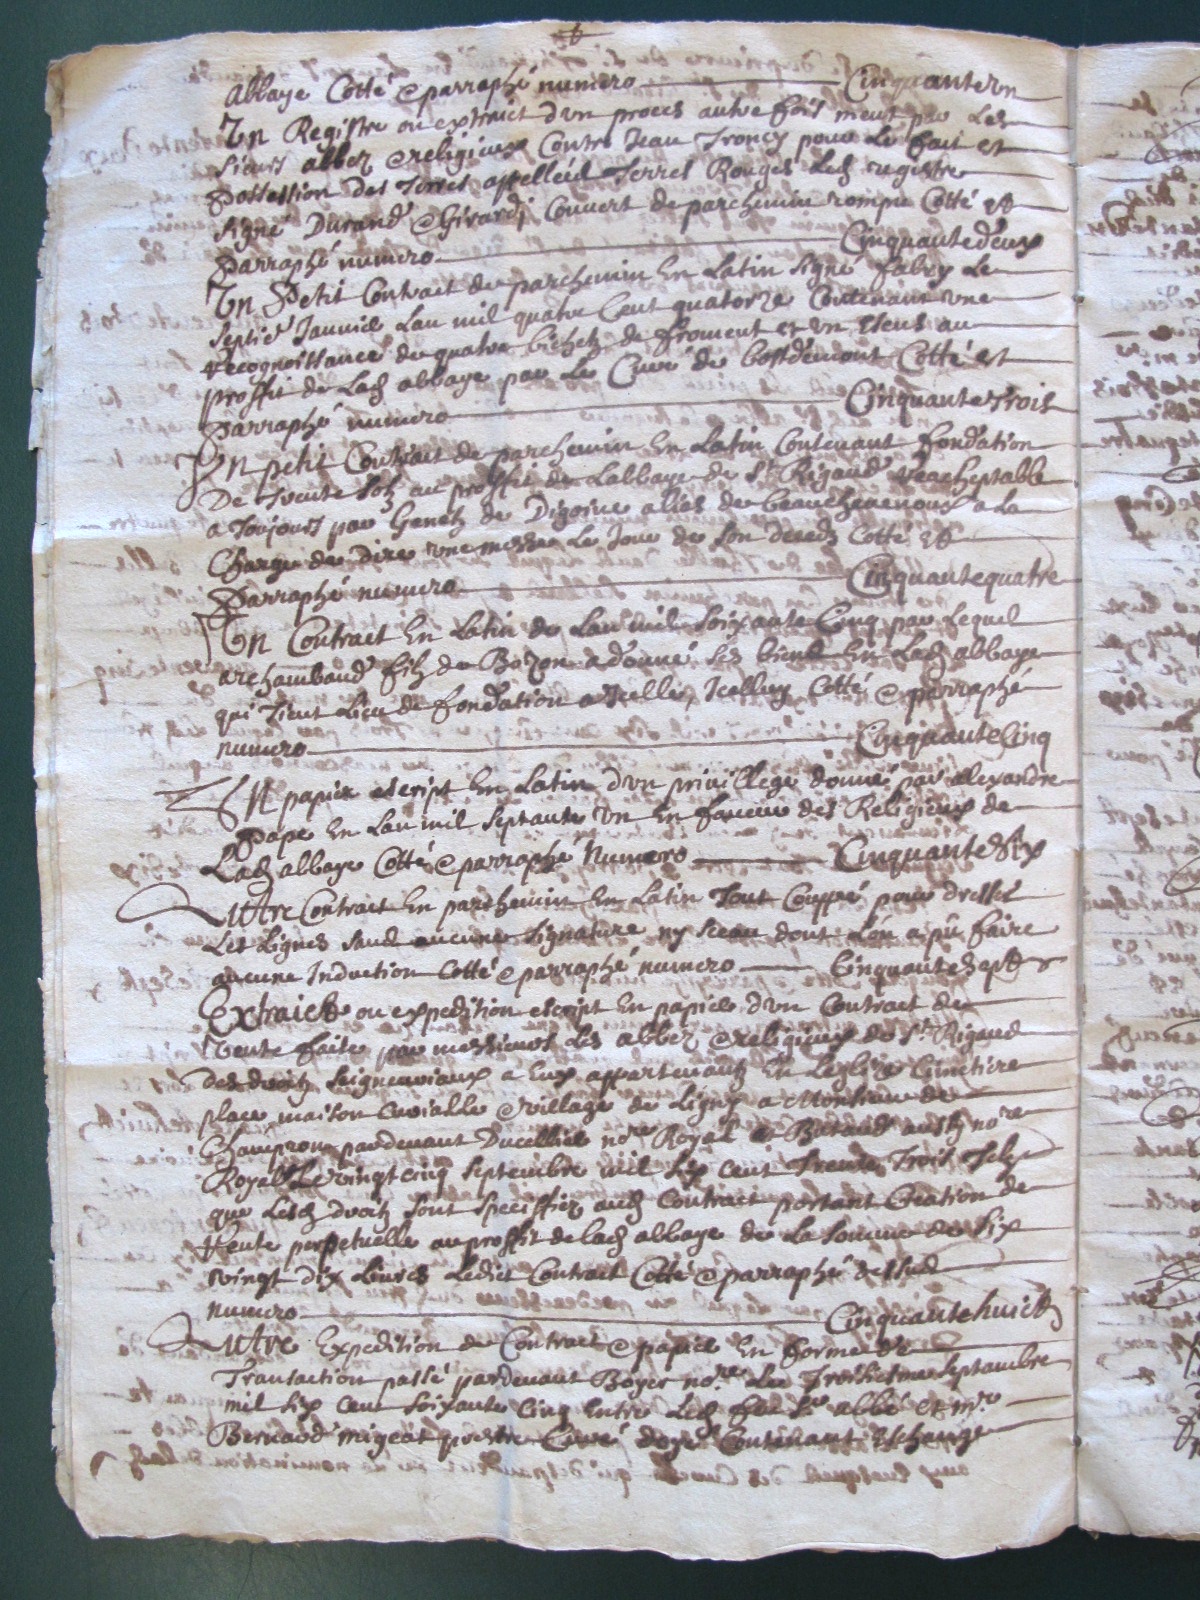 abbaye Cotté & parraphé numero Cinquante un
Un Registre ou extraict d'un proces autre fois meut par Les
Sieurs abbez & religieux Contre Jean Troncy pour Le fait et
possession des Terres appellées Terres Rouges Led registre
signé Durand & Girard Couvert de parchemin rompu Cotté et
parraphé numero Cinquante deux
Un Petit Contract de parchemin En Latin signé fabry Le
septie Janvier Lan mil quatre Cent quatorze Contenant une
recognoissance de quatre bichetz de froment et un au
proffit de Lad abbaye par Le Curé de Cotté et
Parraphé numero Cinquante trois
Un petit Contract de parchemin En Latin Contenant fondation
De trente solz au proffit de Labbaye de St Rigaud reacheptable
a Toujours par de Digoine alias de a La
Charge de Dire une messe Le Jour de son deceds Cotté et
Parraphé numero Cinquante quatre
Un Contract En Latin de Lan mil soixante Cinq par Lequel
archambaud filz de Bozon a donné ses biens En Lad abbaye
qui Tient Lieu de fondation a Icelle, Icelluy Cotté & perraphé
numero Cinquante Cinq
Un papier escript En Latin d'un privillege donné par alexandre
Pape En Lan mil septante un En faveur des Religieux de
Lad abbaye Cotté & parraphé Numero Cinquante Six
Autre Contract En parchemin En Latin Tout Couppé pour dresser
Les Lignes sans aucune signature ny sceau dont Lon a pû faire
aucune Induction Cotté & parraphé numero Cinquante Sept
Extraict ou expedition escript En papier d'un Contract de
Vente faite par messieurs Les abbez & religieux de St Rigaud
des droitz seigneuriaux a Eux appartenantz En Leglize Cimetiere
place maison Curialle & village de Ligny a Monsieur de
Champron pardevant Ducellier nore Royal et aussy nore
Royal Le vingt cinq septembre mil six cent trente trois Telz
que Lesd droitz sont speciffiez aud Contract portant Creation de
Rente perpetuelle au proffit de lad abbaye de La somme de six
vingt dix Livres Ledict Contract Cotté & parraphé dessus
numero Cinquante huict
Autre Expedition de Contract & papier En forme de
Transaction passé pardevant Boyer nore Le septambre
mil six cent soixante Cinq Entre Led feu Sr abbé et mre
Bernard migeat prestre Curé Contenant Eschange